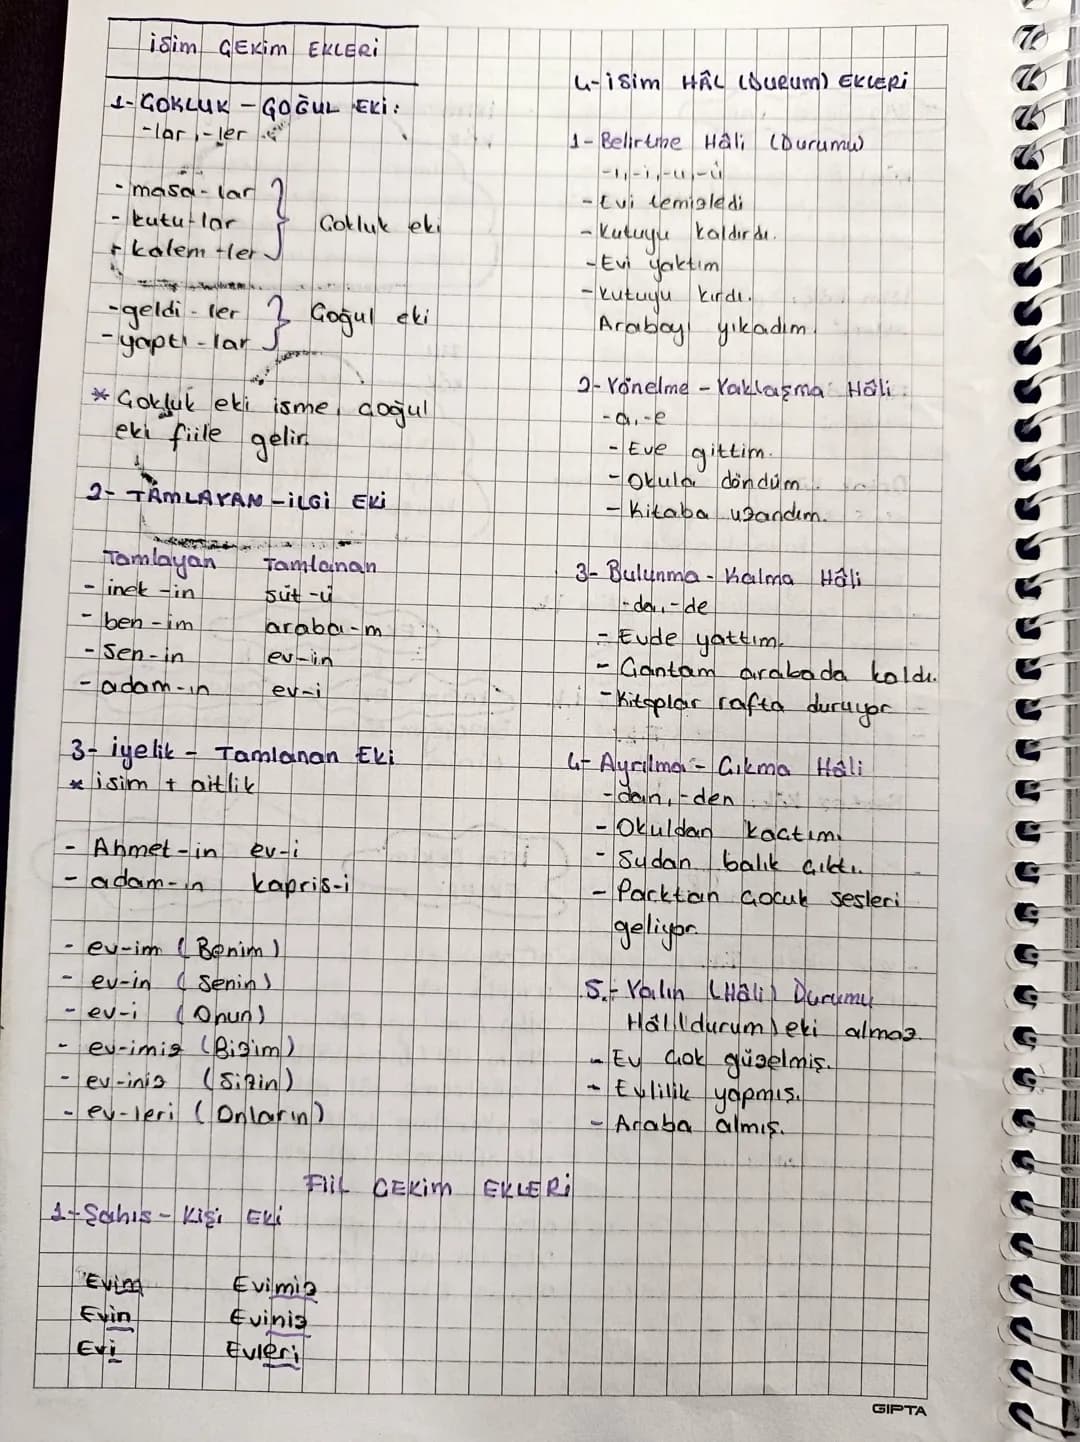 İSİM ÇEKİM EKLERİ
1- ÇOKLUK - ÇOĞUL EKİ:
-lar, -ler
- masa - lar
- kutu - lar
- kalem - ler
Çokluk eki
- geldi - ler
- yaptı - lar
Çoğul eki
* Çokluk eki isme, çoğul
eki fiile gelir.
2- TAMLAYAN - İLGİ EKİ
Tamlayan Tamlanan
- inek - in süt - ü
- ben - im araba - m
- sen - in ev - in
- adam - ın ev - i
3- iyelik - Tamlanan Eki
* isim + aitlik
- Ahmet - in ev - i
- adam - ın kapris - i
- ev - im (Benim)
- ev - in (Senin)
- ev - i (Onun)
- ev - imiz (Bizim)
- ev - iniz (Sizin)
- ev - leri (Onların)
4- İSİM HÂL (DURUM) EKLERİ
1- Belirtme Hâli (Durumu)
-ı, -i, -u, -ü
- Evi temizledi
- Kutuyu kaldırdı.
- Evi yaktım
- Kutuyu kırdı.
Arabayı yıkadım.
2- Yönelme - Yaklaşma Hâli
-a, -e
- Eve gittim.
- Okula döndüm.
- Kitaba uzandım.
3- Bulunma - Kalma Hâli
-da, -de
- Evde yattım.
- Çantam arabada kaldı.
- Kitaplar rafta duruyor
4- Ayrılma - Çıkma Hâli
-dan, -den
- Okuldan kaçtım.
- Sudan balık çıktı.
- Parktan çocuk sesleri
geliyor.
5.- Yalın (Hâli) Durumu
Hâl (durum) eki almaz.
- Ev çok güzelmiş.
- Evlilik yapmış.
- Araba almış.
FİİL ÇEKİM EKLERİ
1- Şahıs - Kişi Eki
Evim Evimiz
Evin Eviniz
Evi Evleri
GIPTA